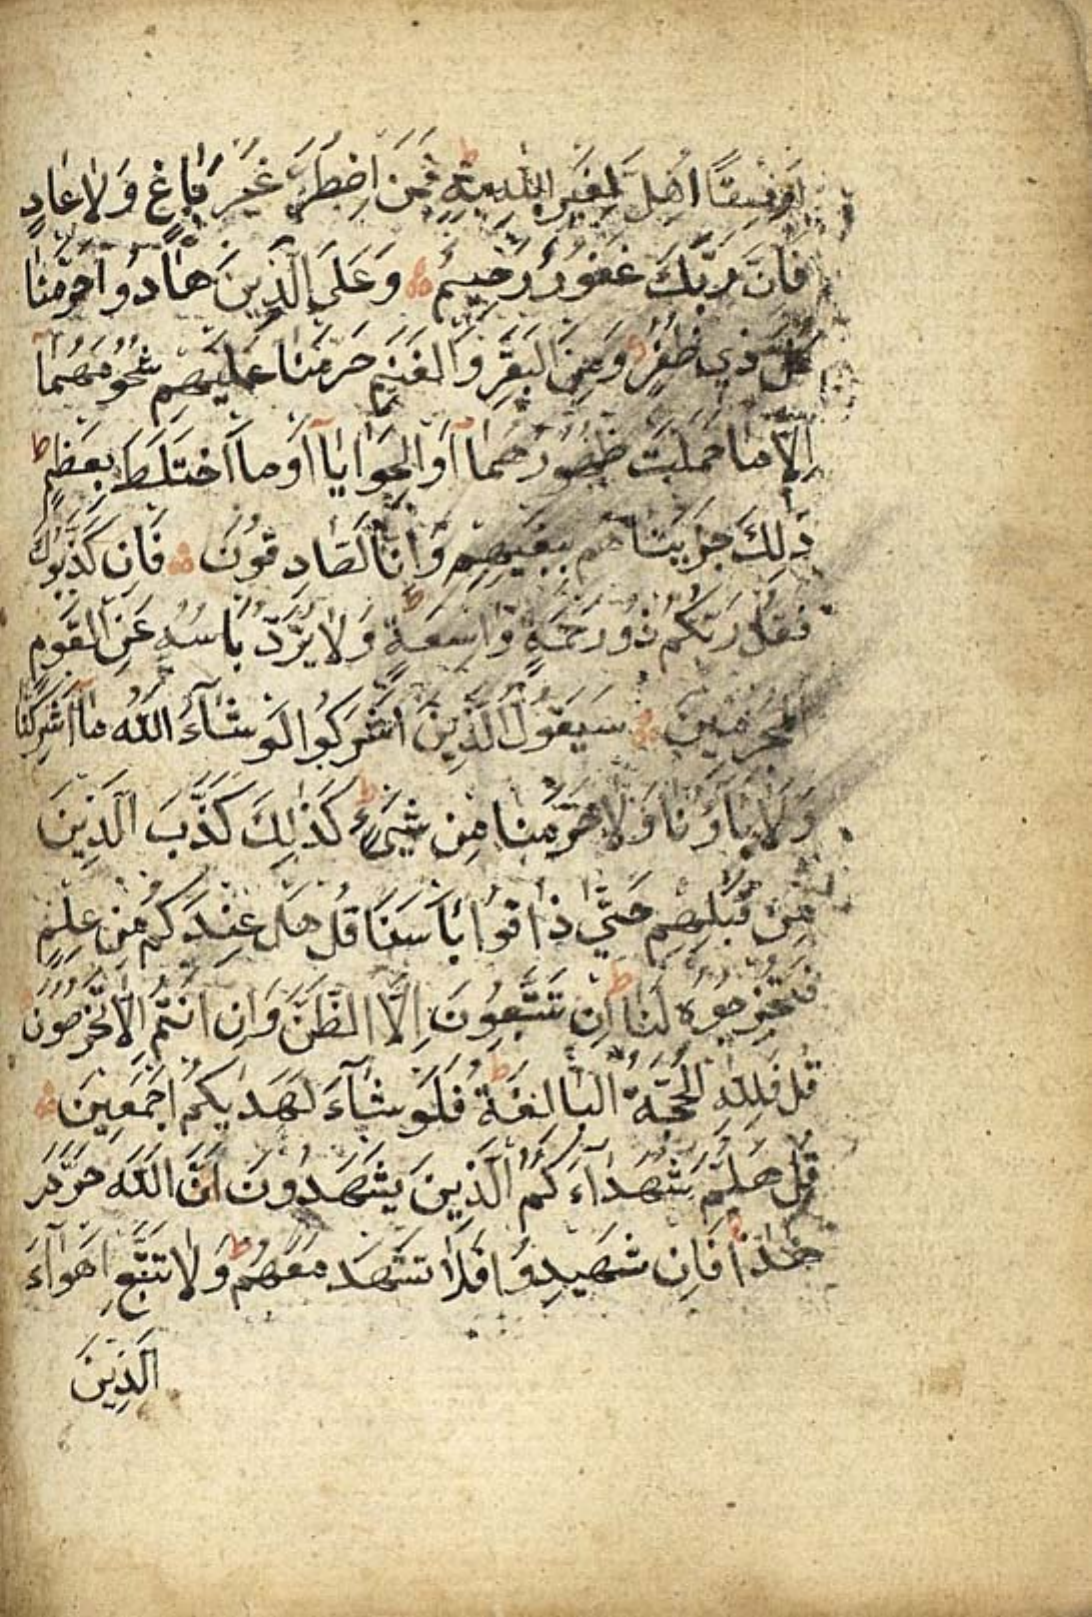 اَوْ فِسْقًا اُهِلَّ لِغَيْرِ اللّٰهِ بِهِ ط فَمَنِ اضْطُرَّ غَيْرَ بَاغٍ وَلَا عَادٍ
فَاِنَّ رَبَّكَ غَفُوْرٌ رَحِيْمٌ وَعَلَى الَّذِيْنَ هَادُوا حَرَّمْنَا
كُلَّ ذِي ظُفُرٍ وَمِنَ الْبَقَرِ وَالْغَنَمِ حَرَّمْنَا عَلَيْهِمْ شُحُوْمَهُمَا
اِلَّا مَا حَمَلَتْ ظُهُوْرُهُمَا اَوِ الْحَوَايَا اَوْ مَا اخْتَلَطَ بِعَظْمٍ ط
ذٰلِكَ جَزَيْنَاهُمْ بِبَغْيِهِمْ وَاِنَّا لَصَادِقُوْنَ فَاِنْ كَذَّبُوْكَ
فَقُلْ رَبُّكُمْ ذُوْ رَحْمَةٍ وَاسِعَةٍ ط وَلَا يُرَدُّ بَاْسُهُ عَنِ الْقَوْمِ
الْمُجْرِمِيْنَ سَيَقُوْلُ الَّذِيْنَ اَشْرَكُوْا لَوْ شَآءَ اللّٰهُ مَا اَشْرَكْنَا
وَلَا اٰبَاؤُنَا وَلَا حَرَّمْنَا مِنْ شَيْءٍ ط كَذٰلِكَ كَذَّبَ الَّذِيْنَ
مِنْ قَبْلِهِمْ حَتّٰى ذَاقُوْا بَاْسَنَا قُلْ هَلْ عِنْدَكُمْ مِنْ عِلْمٍ
فَتُخْرِجُوْهُ لَنَا ط اِنْ تَتَّبِعُوْنَ اِلَّا الظَّنَّ وَاِنْ اَنْتُمْ اِلَّا تَخْرُصُوْنَ
قُلْ فَلِلّٰهِ الْحُجَّةُ الْبَالِغَةُ ط فَلَوْ شَآءَ لَهَدٰيكُمْ اَجْمَعِيْنَ
قُلْ هَلُمَّ شُهَدَآءَكُمُ الَّذِيْنَ يَشْهَدُوْنَ اَنَّ اللّٰهَ حَرَّمَ
هٰذَا فَاِنْ شَهِدُوْا فَلَا تَشْهَدْ مَعَهُمْ ط وَلَا تَتَّبِعْ اَهْوَآءَ
الَّذِيْنَ